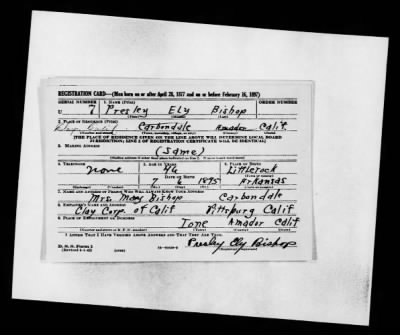 REGISTRATION CARD—(Men born on or after April 28, 1877 and on or before February 16, 1897)
SERIAL NUMBER 1. NAME (Print) ORDER NUMBER
U 7 Presley Ely Bishop
(First) (Middle) (Last)
2. PLACE OF RESIDENCE (Print)
Carbondale Amador Calif.
(THE PLACE OF RESIDENCE GIVEN ON THE LINE ABOVE WILL DETERMINE LOCAL BOARD
JURISDICTION; LINE 2 OF REGISTRATION CERTIFICATE WILL BE IDENTICAL)
3. MAILING ADDRESS
(Same)
4. TELEPHONE 5. AGE IN YEARS 6. PLACE OF BIRTH
none 46 Littlerock
DATE OF BIRTH
1895 Arkansas
7. NAME AND ADDRESS OF PERSON WHO WILL ALWAYS KNOW YOUR ADDRESS
Mrs. Mary Bishop Carbondale
8. EMPLOYER'S NAME AND ADDRESS
Clay Corp. of Calif Pittsburg Calif
9. PLACE OF EMPLOYMENT OR BUSINESS
Ione Amador Calif
I AFFIRM THAT I HAVE VERIFIED ABOVE ANSWERS AND THAT THEY ARE TRUE.
D. S. S. Form 1 Presley Ely Bishop